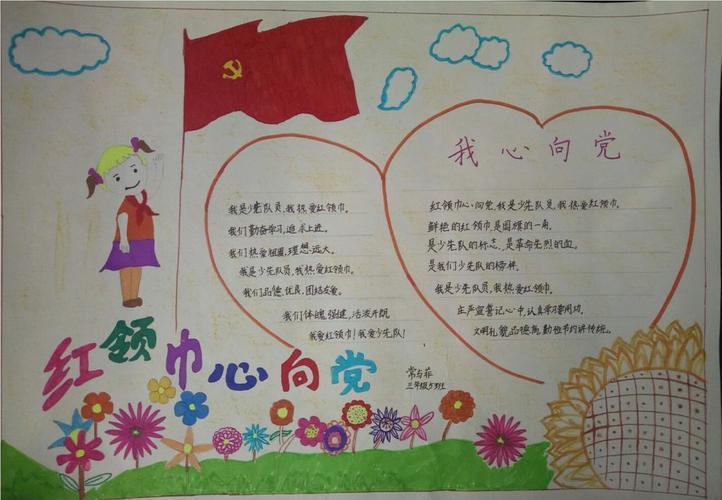 我是少先队员,我热爱红领巾。
我们勤奋学习,追求上进。
我们热爱祖国,理想远大。
我是少先队员,我热爱红领巾。
我们品德优良,团结友爱。
我们体魄强健,活泼开朗
我爱红领巾!我爱少先队!
我心向党
红领巾心向党,我是少先队员,我热爱红领巾。
鲜艳的红领巾,是国旗的一角,
是少先队的标志,是革命先烈的血。
是我们少先队的榜样。
我是少先队员,我热爱红领巾。
庄严宣誓记心中,认真学习要用功。
文明礼貌品德高,勤俭节约讲传统。
红领巾心向党
常与菲
三年级5班